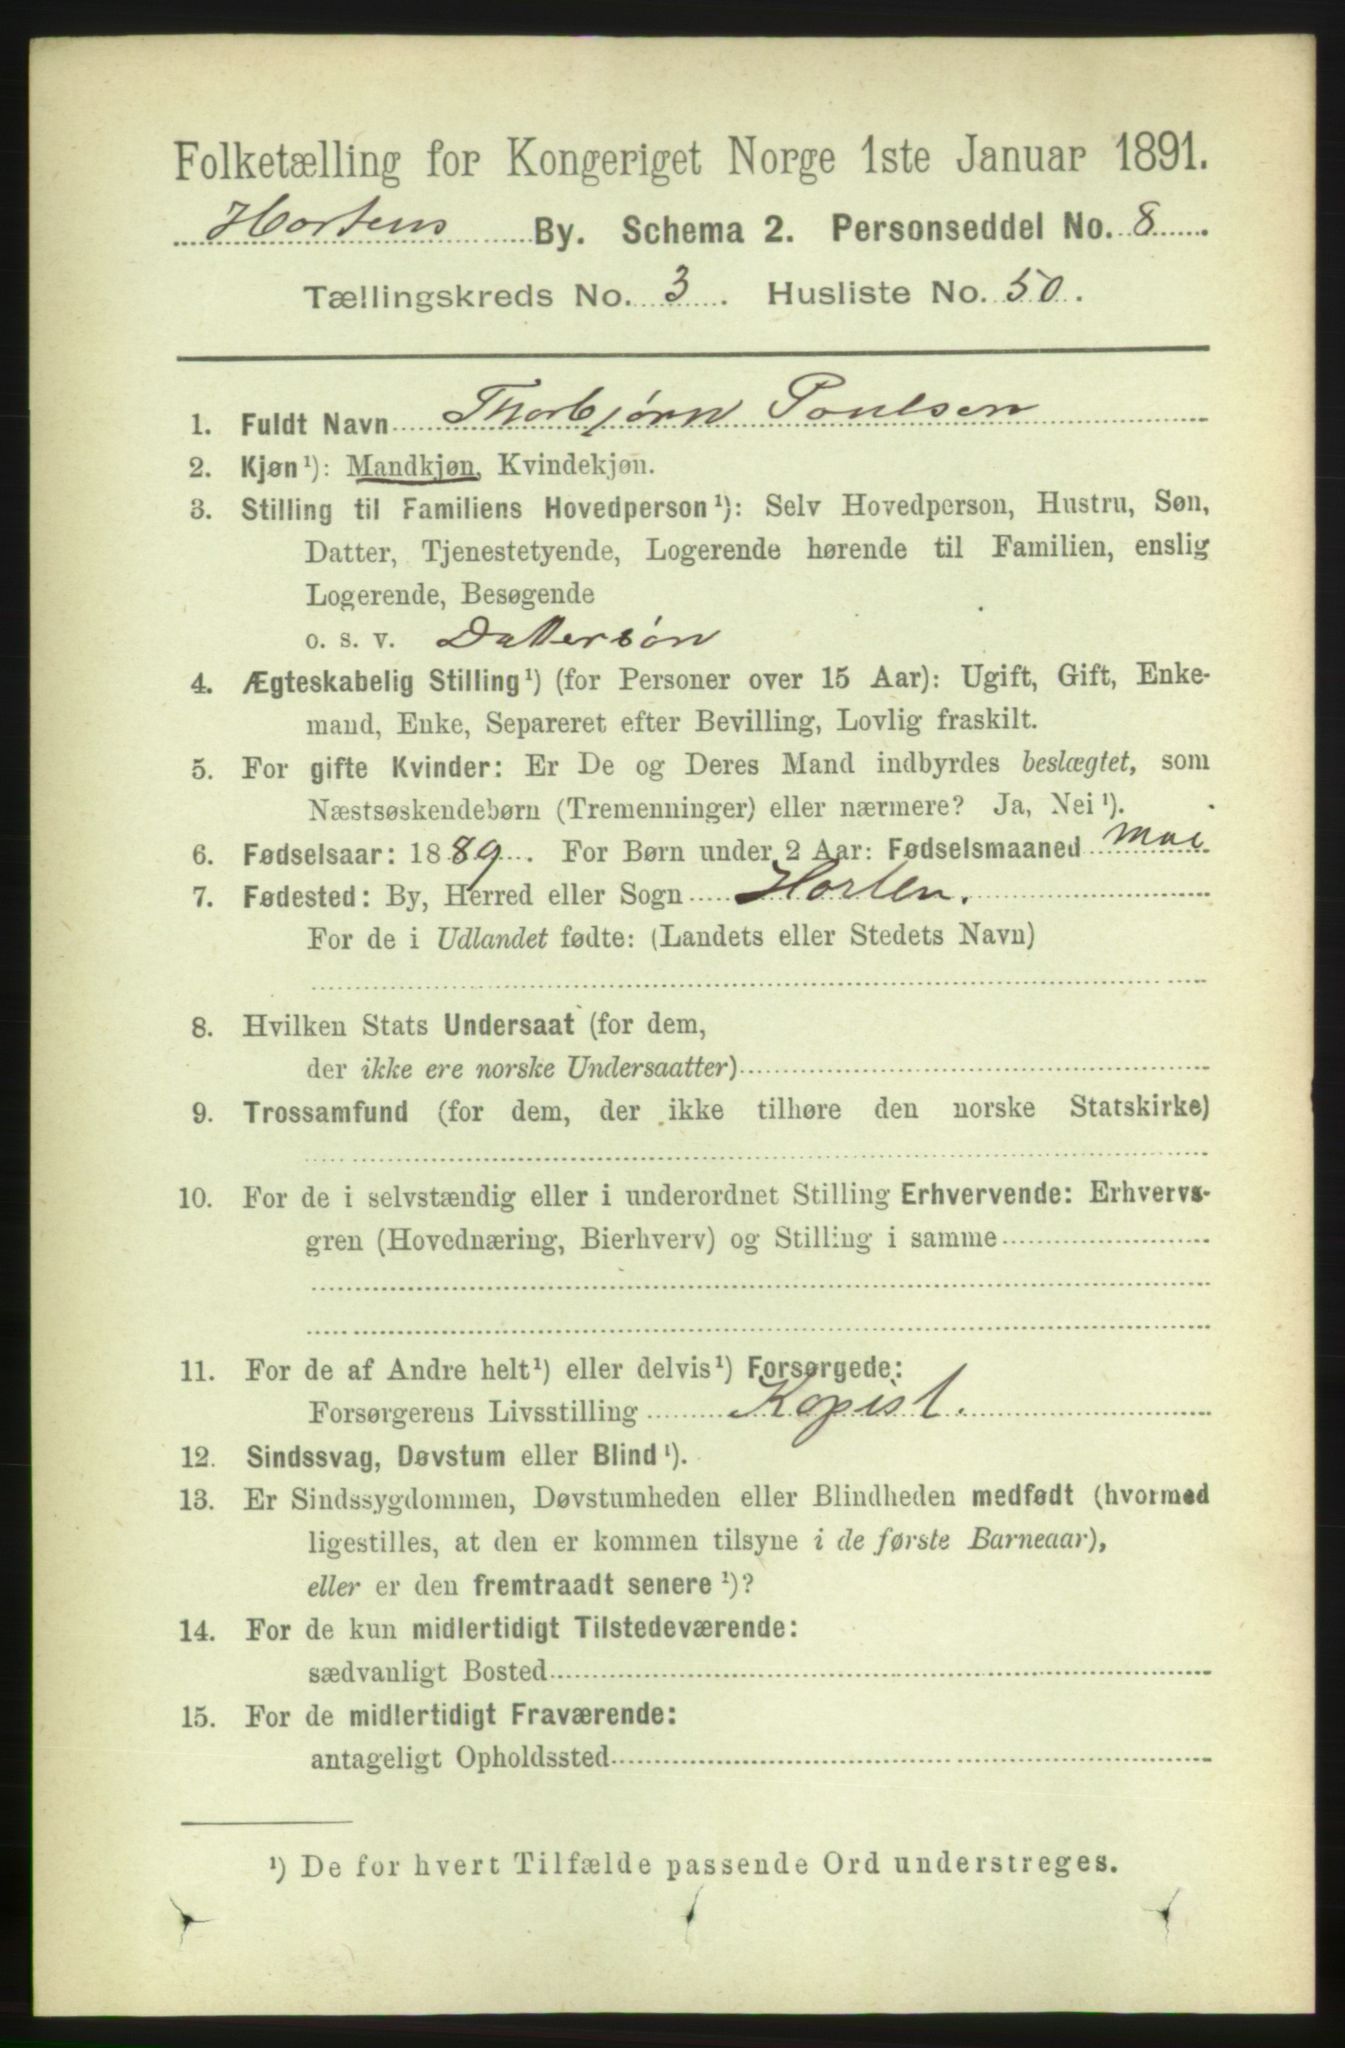 Folketælling for Kongeriget Norge 1ste Januar 1891.
Hortens By. Schema 2. Personseddel No. 8
Tællingskreds No. 3. Husliste No. 50.
1. Fuldt Navn Thorbjørn Poulsen
2. Kjøn¹): Mandkjøn, Kvindekjøn.
3. Stilling til Familiens Hovedperson¹): Selv Hovedperson, Hustru, Søn,
Datter, Tjenestetyende, Logerende hørende til Familien, enslig
Logerende, Besøgende
o. s. v. Dattersøn
4. Ægteskabelig Stilling¹) (for Personer over 15 Aar): Ugift, Gift, Enke-
mand, Enke, Separeret efter Bevilling, Lovlig fraskilt.
5. For gifte Kvinder: Er De og Deres Mand indbyrdes beslægtet, som
Næstsøskendebørn (Tremenninger) eller nærmere? Ja, Nei¹).
6. Fødselsaar: 1889. For Børn under 2 Aar: Fødselsmaaned Mai
7. Fødested: By, Herred eller Sogn Horten.
For de i Udlandet fødte: (Landets eller Stedets Navn)
8. Hvilken Stats Undersaat (for dem,
der ikke ere norske Undersaatter)
9. Trossamfund (for dem, der ikke tilhøre den norske Statskirke)
10. For de i selvstændig eller i underordnet Stilling Erhvervende: Erhvervs-
gren (Hovednæring, Bierhverv) og Stilling i samme
11. For de af Andre helt¹) eller delvis¹) Forsørgede:
Forsørgerens Livsstilling Kopist.
12. Sindssvag, Døvstum eller Blind¹).
13. Er Sindssygdommen, Døvstumheden eller Blindheden medfødt (hvormed
ligestilles, at den er kommen tilsyne i de første Barneaar),
eller er den fremtraadt senere¹)?
14. For de kun midlertidigt Tilstedeværende:
sædvanligt Bosted
15. For de midlertidigt Fraværende:
antageligt Opholdssted
¹) De for hvert Tilfælde passende Ord understreges.